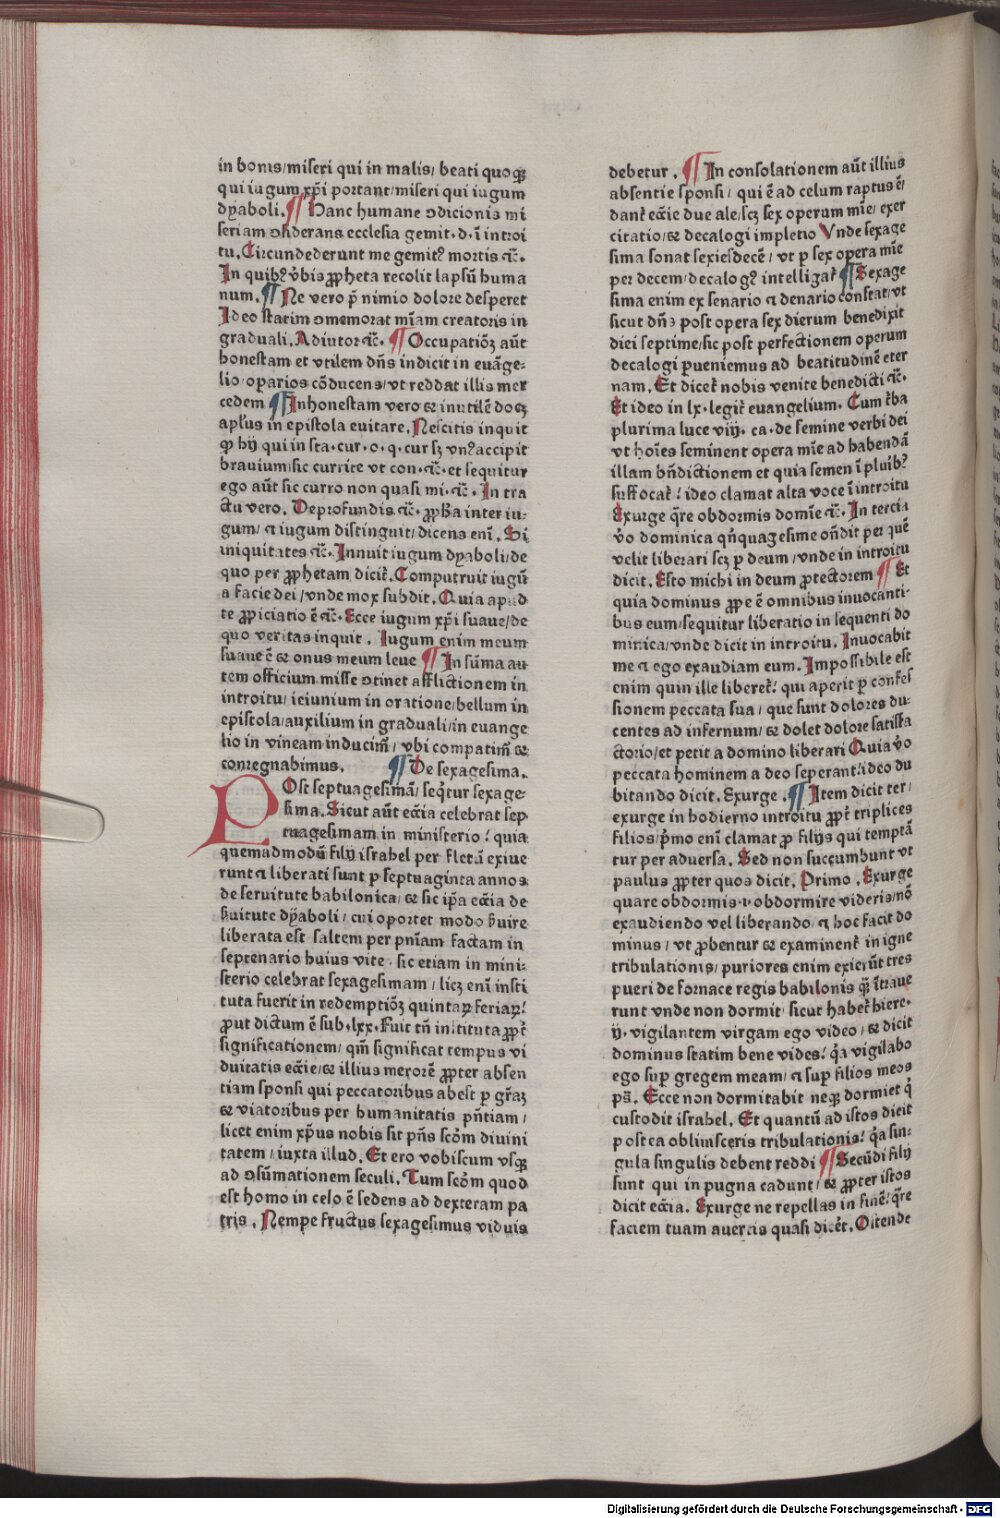 in bonis/miseri qui in malis/ beati quoqꝫ
qui iugum xp̄i portant/miseri qui iugum
dyaboli. ¶ Hanc humane ꝯdicionis mi
seriam ꝯsiderans ecclesia gemit. d. ī introi
tu. Circumdederunt me gemitꝰ mortis ⁊c̄.
In quibꝰ v̄bis ꝓpheta recolit lapsū huma
num. ¶ Ne vero p̄ nimio dolore desperet
Ideo statim ꝯmemorat m̄iam creatoris in
graduali. Adiutor ⁊c̄. ¶ Occupatiōꝫ aūt
honestam et vtilem dn̄s indicit in euāge-
lio/oparios cōducens/vt reddat illis mer
cedem ¶ Inhonestam vero ⁊ inutilē docꝫ
apl̄us in epistola euitare. Nescitis inquit
ꝙ hij qui in sta. cur. o. q. cur sꝫ vnꝰ accipit
brauium/sic currite vt con. ⁊c̄. et sequitur
ego aūt sic curro non quasi in i. ⁊c̄. In tra
ctu vero. Deprofundis ⁊c̄. ꝓpħa inter iu-
gum/ ⁊ iugum distinguit/dicens enī. Si
iniquitates ⁊c̄. Innuit iugum dyaboli/de
quo per ꝓphetam dicit᷑. Computruit iugū
a facie dei/vnde mox subdit. Quia apud
te ꝓpiciatio ē ⁊c̄. Ecce iugum xp̄i suaue/de
quo veritas inquit. Iugum enim meum
suaue ē ⁊ onus meum leue ¶ In sūma au-
tem officium misse ꝯtinet afflictionem in
introitu/ ieiunium in oratione/bellum in
epistola/auxilium in graduali/in euange
lio in vineam inducim̄/ vbi compatim̄ ⁊
conregnabimus. ¶ De sexagesima.
POst septuagesimā/ seq̄tur sexage-
sima. Sicut aūt eccīa celebrat sep
tuagesimam in ministerio/ quia
quemadmodū filij israhel per fletū exiue
runt ⁊ liberati sunt p septuaginta annos
de seruitute babilonica/ ⁊ sic ip̄a eccīa de
ẜuitute dyaboli/ cui oportet modo ẜuire
liberata est saltem per pn̄iam factam in
septenario huius vite. sic etiam in mini-
sterio celebrat sexagesimam/ licꝫ enī insti
tuta fuerit in redemptiōꝫ quintaꝝ feriaꝝ/
ꝓut dictum ē sub. lxx. Fuit tn̄ instituta ꝓpt᷑
significationem/ qm̄ significat tempus vi
duitatis eccīe/⁊ illius merorē ꝓpter absen
tiam sponsi qui peccatoribus abest p gr̄aꝫ
⁊ viatoribus per humanitatis pn̄tiam/
licet enim xp̄us nobis sit pn̄s scōm diuini
tatem/ iuxta illud. Et ero vobiscum vsqꝫ
ad ꝯsūmationem seculi. Tum scōm quod
est homo in celo ē sedens ad dexteram pa
tris. Nempe fructus sexagesimus viduis
debetur. ¶ In consolationem aūt illius
absentie sponsi/ qui ē ad celum raptus ē/
dant᷑ eccīe due ale/ scꝫ sex operum mīe/ exer
citatio/⁊ decalogi impletio Vnde sexage
sima sonat sexiesdecē/ vt p sex opera mīe
per decem/decalogꝰ intelligat᷑ ¶ Sexage
sima enim ex senario ⁊ denario constat/vt
sicut dn̄s post opera sex dierum benedixit
diei septime/sic post perfectionem operum
decalogi pueniemus ad beatitudinē eter
nam. Et dicet᷑ nobis venite benedicti ⁊c̄.
Et ideo in lx. legit᷑ euangelium. Cum t᷑ba
plurima luce viij. ca. de semine verbi dei
vt hoīes seminent opera mīe ad habendā
illam bn̄dictionem et quia semen ī pluibꝰ
suffocat᷑/ ideo clamat alta voce ī introitu
Exurge q̄re obdormis domīe ⁊c̄. In tercia
v̄o dominica qn̄quagesime on̄dit per quē
velit liberari scꝫ p deum/vnde in introitu
dicit. Esto michi in deum ꝓtectorem ¶ Et
quia dominus ꝓpe ē omnibus inuocanti-
bus eum/sequitur liberatio in sequenti do
minica/vnde dicit in introitu. Inuocabit
me ⁊ ego exaudiam eum. Impossibile est
enim quin ille liberet᷑/ qui aperit p confes
sionem peccata sua/ que sunt dolores du-
centes ad infernum/⁊ dolet dolore satisfa
ctorio/et petit a domino liberari Quia v̄o
peccata hominem a deo seperant/ideo du
bitando dicit. Exurge. ¶ Item dicit ter/
exurge in hodierno introitu ꝓpt᷑ triplices
filios/p̄mo enī clamat ꝓ filijs qui temptā
tur per aduersa. Sed non succumbunt vt
paulus ꝓpter quos dicit. Primo. Exurge
quare obdormis.i. obdormire videris/nō
exaudiendo vel liberando/ ⁊ hoc facit do
minus/ vt ꝓbentur ⁊ examinent᷑ in igne
tribulationis/ puriores enim exierūt tres
pueri de fornace regis babilonis q̄ꝫ ītraue
runt vnde non dormit/ sicut habet᷑ hiere.
ij. vigilantem virgam ego video/ ⁊ dicit
dominus statim bene vides/ q̄a vigilabo
ego sup̄ gregem meam/ ⁊ sup̄ filios meos
ps̄. Ecce non dormitabit neqꝫ dormiet q̄
custodit israhel. Et quantū ad istos dicit
postea obliuisceris tribulationis/ q̄a sin-
gula singulis debent reddi ¶ Secūdi filij
sunt qui in pugna cadunt/ ⁊ ꝓpter istos
dicit eccīa. Exurge ne repellas in finē/ q̄re
faciem tuam auertis quasi dicēt. Ostende
Digitalisierung gefördert durch die Deutsche Forschungsgemeinschaft - DFG